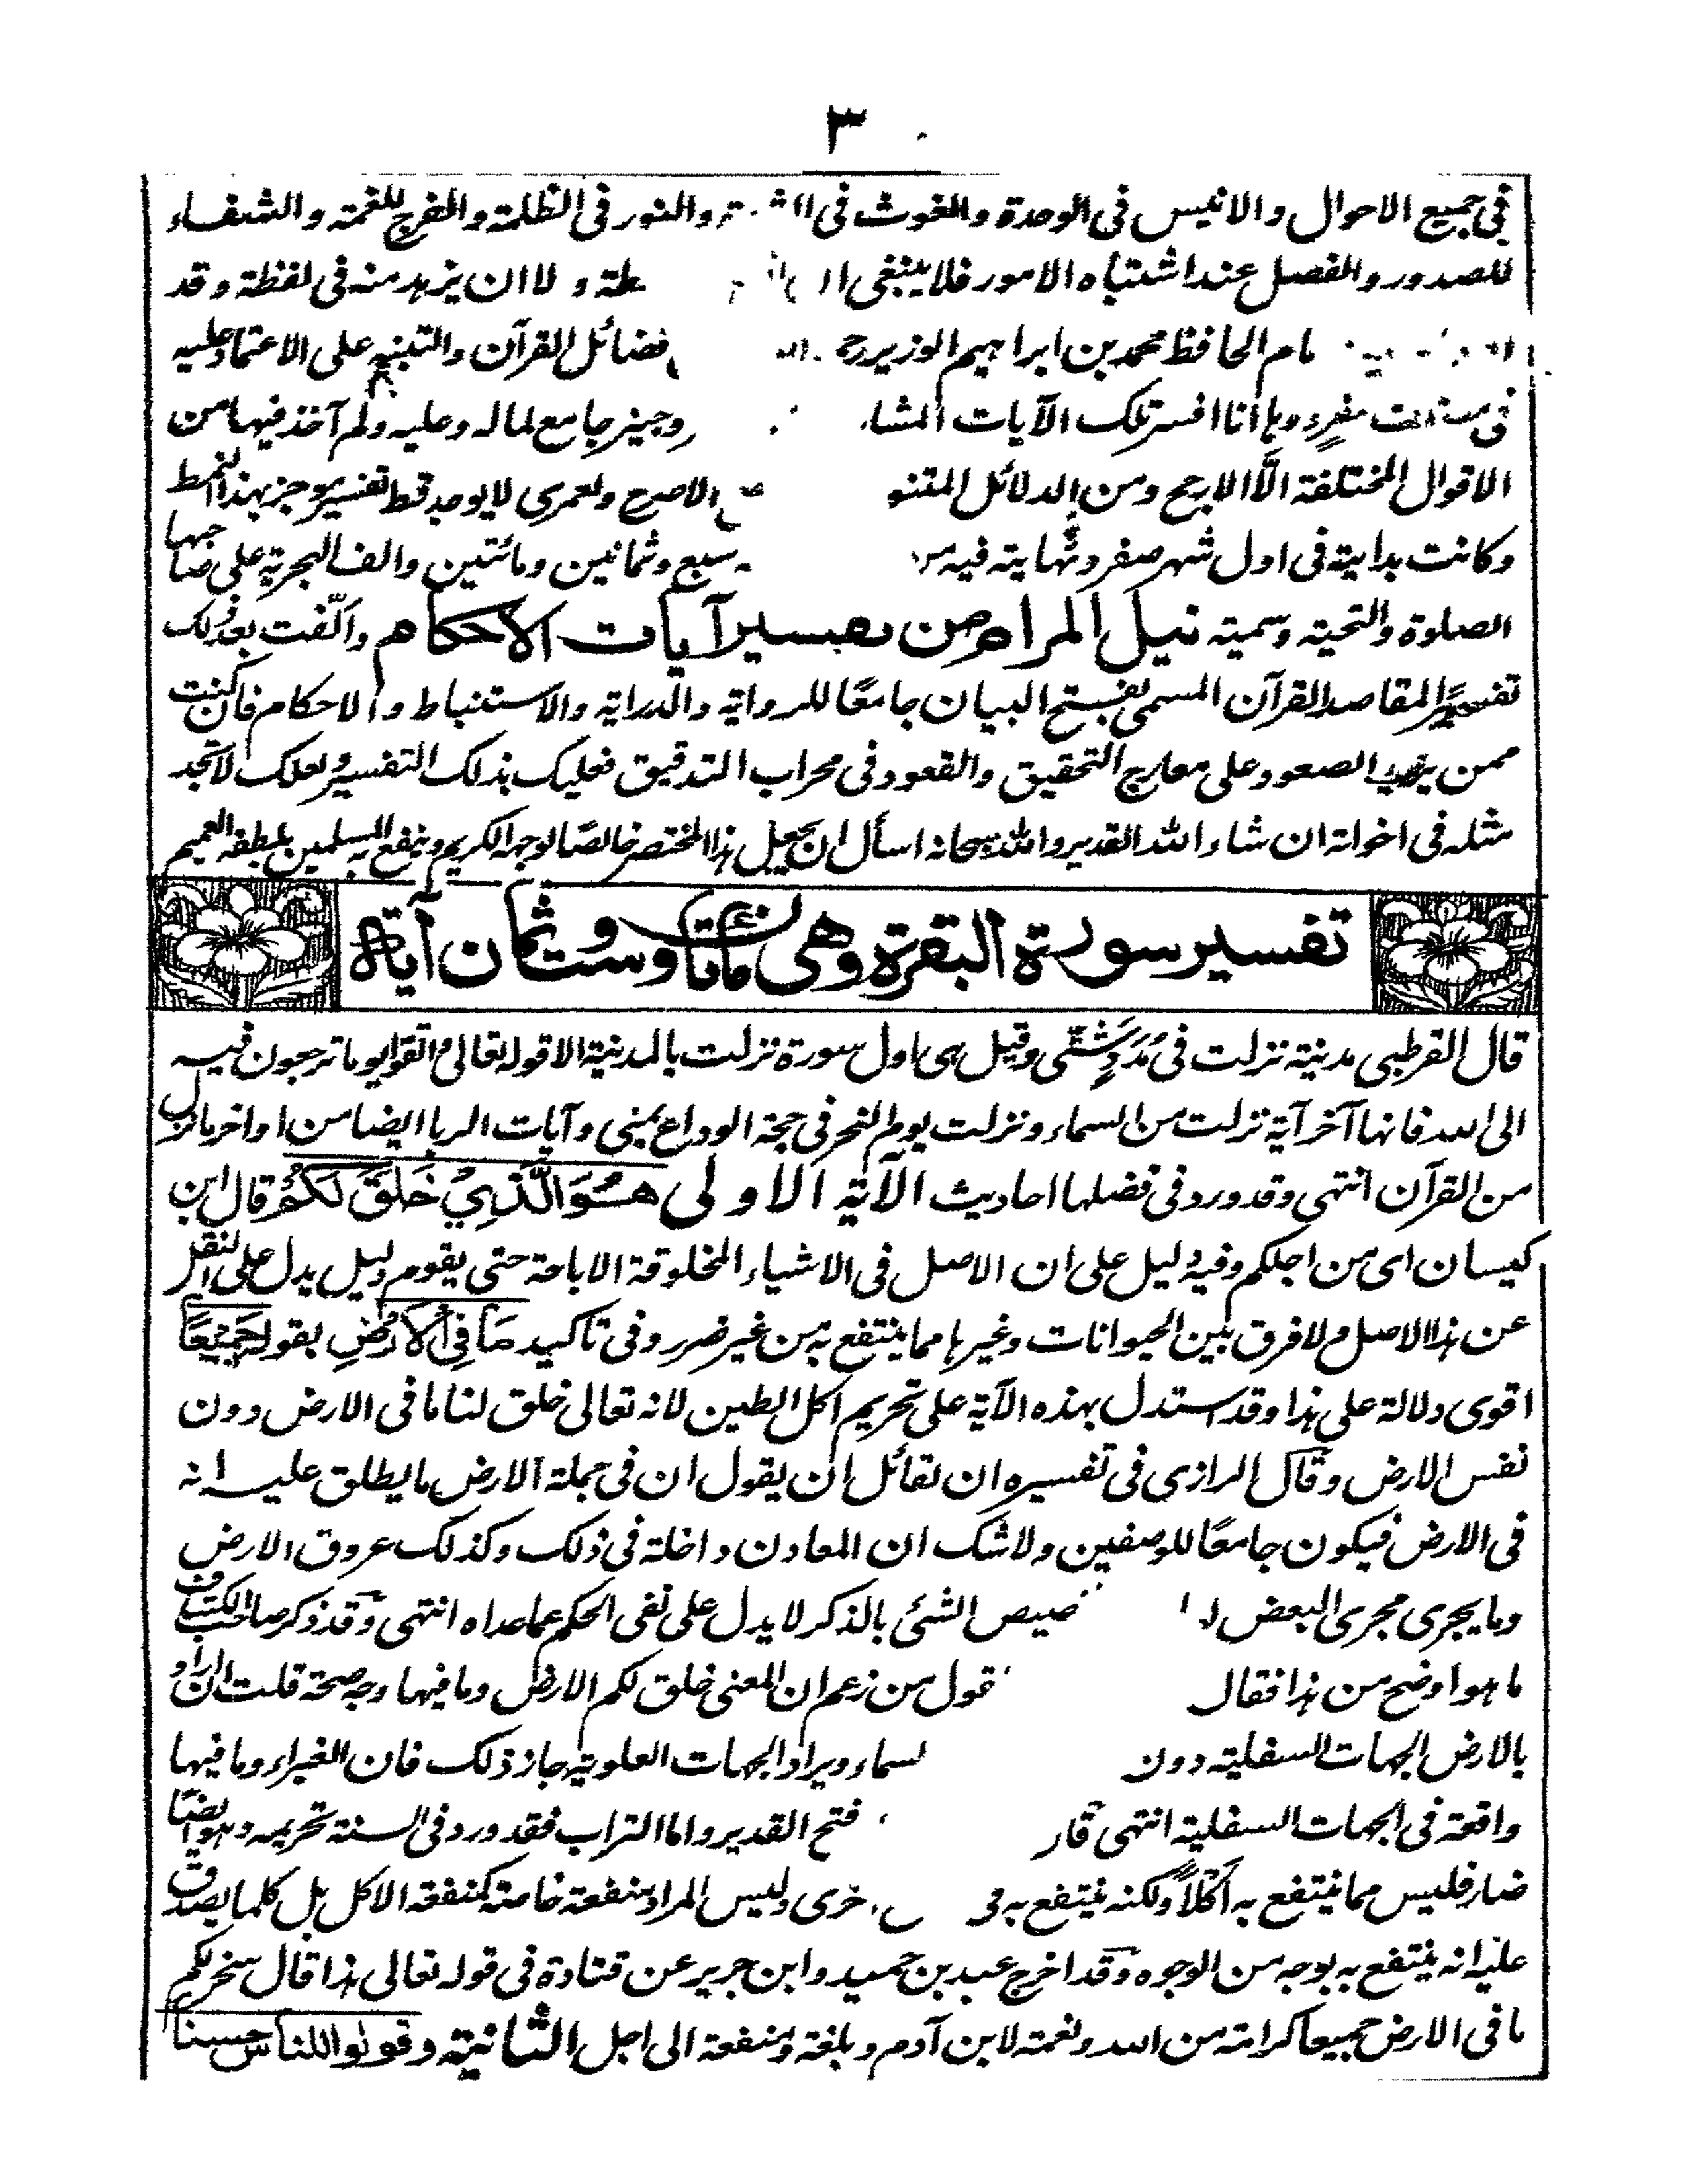 ٣
فى جميع الاحوال والانيس فى الوحدة والغوث فى والنور فى الظلمة والمفرج للغمة والشفاء
للصدور والفصل عند اشتباه الامور فلا ينبغى و لا ان يزهد منه فى لفظة وقد
الحافظ محمد بن ابراهيم الوزير فضائل القرآن والتنبيه على الاعتماد عليه
فى مفرد وها انا افسر تلك الآيات وجيز جامع لما له وعليه ولم آخذ فيها من
الاقوال المختلفة الّا الارجح ومن الدلائل الاصرح ولعمرى لا يوجد قط تفسير موجز بهذا النمط
وكانت بداية فى اول شهر صفر ونهاية فيه سبع وثمانين ومائتين والف الهجرية على صاحبها
الصلوة والتحية وسميته نيل المرام من تفسير آيات الاحكام والّفت بعد ذلك
تفسيرًا لمقاصد القرآن المسمى بفتح البيان جامعًا للرواية والدراية والاستنباط والاحكام فان كنت
ممن يريد الصعود على معارج التحقيق والقعود فى محراب التدقيق فعليك بذلك التفسير ولعلك لا تجد
مثله فى اخواته ان شاء الله القدير والله سبحانه اسأل ان يجعل هذا المختصر خالصًا لوجهه الكريم وينفع به المسلمين بلطفه العميم
تفسير سورة البقرة وهى مائتان وست وثمان آية
قال القرطبى مدنية نزلت فى مُدَدٍ شَتّٰى وقيل هى اول سورة نزلت بالمدينة الا قوله تعالى واتقوا يوما ترجعون فيه
الى الله فانها آخر آية نزلت من السماء ونزلت يوم النحر فى حجة الوداع بمنى وآيات الربا ايضا من اواخر ما نزل
من القرآن انتهى وقد ورد فى فضلها احاديث الآية الاولى هُوَ الَّذِيْ خَلَقَ لَكُمْ قال ابن
كيسان اى من اجلكم وفيه دليل على ان الاصل فى الاشياء المخلوقة الاباحة حتى يقوم دليل يدل على النقل
عن هذا الاصل ولا فرق بين الحيوانات وغيرها مما ينتفع به من غير ضرر وفى تاكيد مَا فِى الْاَرْضِ بقوله جَمِيْعًا
اقوى دلالة على هذا وقد استدل بهذه الآية على تحريم اكل الطين لانه تعالى خلق لنا ما فى الارض دون
نفس الارض وقال الرازى فى تفسيره ان لقائل ان يقول ان فى جملة الارض ما يطلق عليه انه
فى الارض فيكون جامعًا للوصفين ولا شك ان المعادن داخلة فى ذلك وكذلك عروق الارض
وما يجرى مجرى البعض الشئ بالذكر لا يدل على نفى الحكم عما عداه انتهى وقد ذكر صاحب الكشاف
ما هو اوضح من هذا فقال من زعم ان المعنى خلق لكم الارض وما فيها وجه صحة قلت ان اراد
بالارض الجهات السفلية دون ويراد الجهات العلوية جاز ذلك فان الغبراء وما فيها
واقعة فى الجهات السفلية انتهى فتح القدير واما التراب فقد ورد فى السنة تحريمه وهو ايضًا
ضار فليس مما ينتفع به اكلاً ولكنه ينتفع به وليس المراد منفعة خاصة كمنفعة الاكل بل كلما يصدق
عليه انه ينتفع به بوجه من الوجوه وقد اخرج عبد بن حميد وابن جرير عن قتادة فى قوله تعالى هذا قال سخر لكم
ما فى الارض جميعا كرامة من الله ونعمة لابن آدم وبلغة ومنفعة الى اجل الثانية وقولوا للناس حسنا